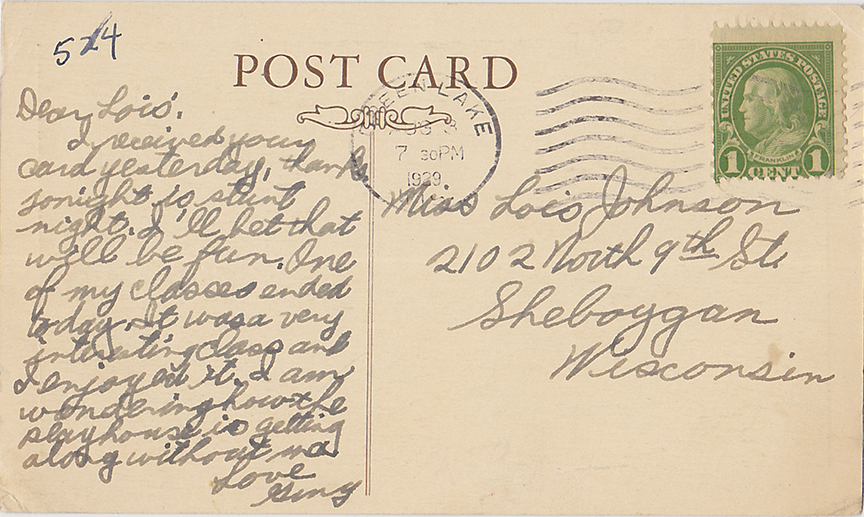 524
POST CARD
GREEN LAKE
AUG 3
7 30PM
1929
WIS.
UNITED STATES POSTAGE
FRANKLIN
1 CENT 1
Dear Lois:
I received your
card yesterday, thanks
tonight is stunt
night. I'll bet that
will be fun. One
of my classes ended
today. It was a very
intersting class and
I enjoyed it. I am
wondering how the
playhouse is getting
along without me
Love
Giny
Miss Lois Johnson
2102 North 9th St.
Sheboygan
Wisconsin